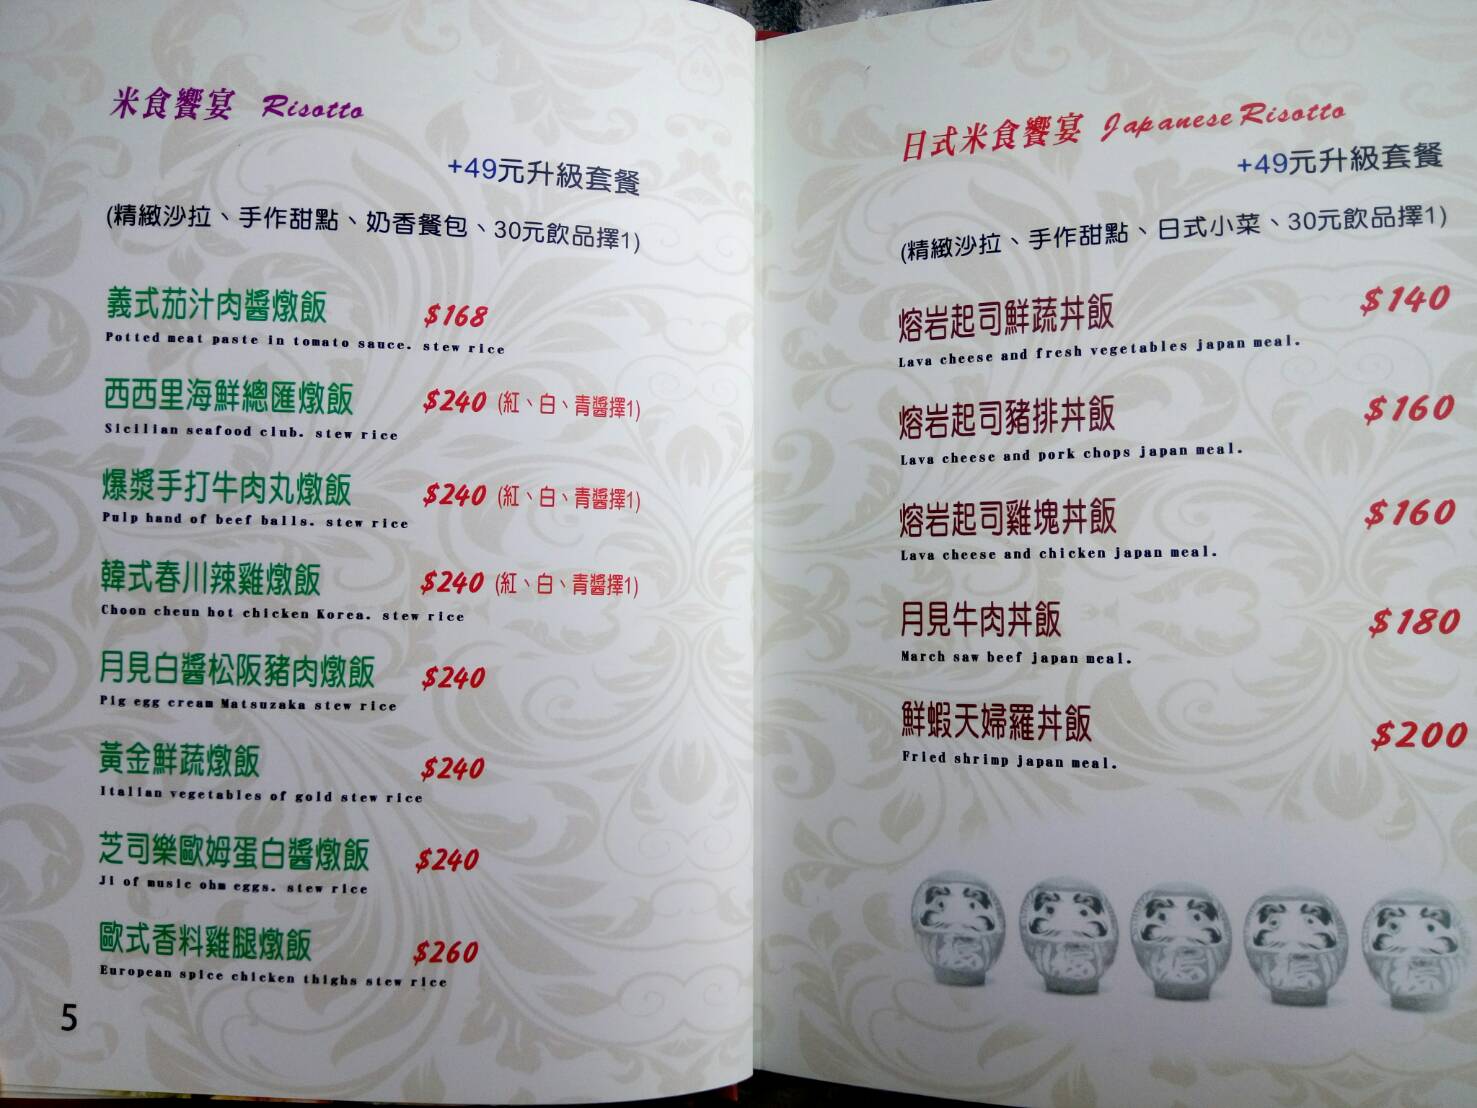 米食饗宴 Risotto
+49元升級套餐
(精緻沙拉、手作甜點、奶香餐包、30元飲品擇1)
義式茄汁肉醬燉飯 $168
Potted meat paste in tomato sauce. stew rice
西西里海鮮總匯燉飯 $240 (紅、白、青醬擇1)
Sicilian seafood club. stew rice
爆漿手打牛肉丸燉飯 $240 (紅、白、青醬擇1)
Pulp hand of beef balls. stew rice
韓式春川辣雞燉飯 $240 (紅、白、青醬擇1)
Choon cheun hot chicken Korea. stew rice
月見白醬松阪豬肉燉飯 $240
Pig egg cream Matsuzaka stew rice
黃金鮮蔬燉飯 $240
Italian vegetables of gold stew rice
芝司樂歐姆蛋白醬燉飯 $240
Ji of music ohm eggs. stew rice
歐式香料雞腿燉飯 $260
European spice chicken thighs stew rice
5
日式米食饗宴 Japanese Risotto
+49元升級套餐
(精緻沙拉、手作甜點、日式小菜、30元飲品擇1)
熔岩起司鮮蔬丼飯 $140
Lava cheese and fresh vegetables japan meal.
熔岩起司豬排丼飯 $160
Lava cheese and pork chops japan meal.
熔岩起司雞塊丼飯 $160
Lava cheese and chicken japan meal.
月見牛肉丼飯 $180
March saw beef japan meal.
鮮蝦天婦羅丼飯 $200
Fried shrimp japan meal.